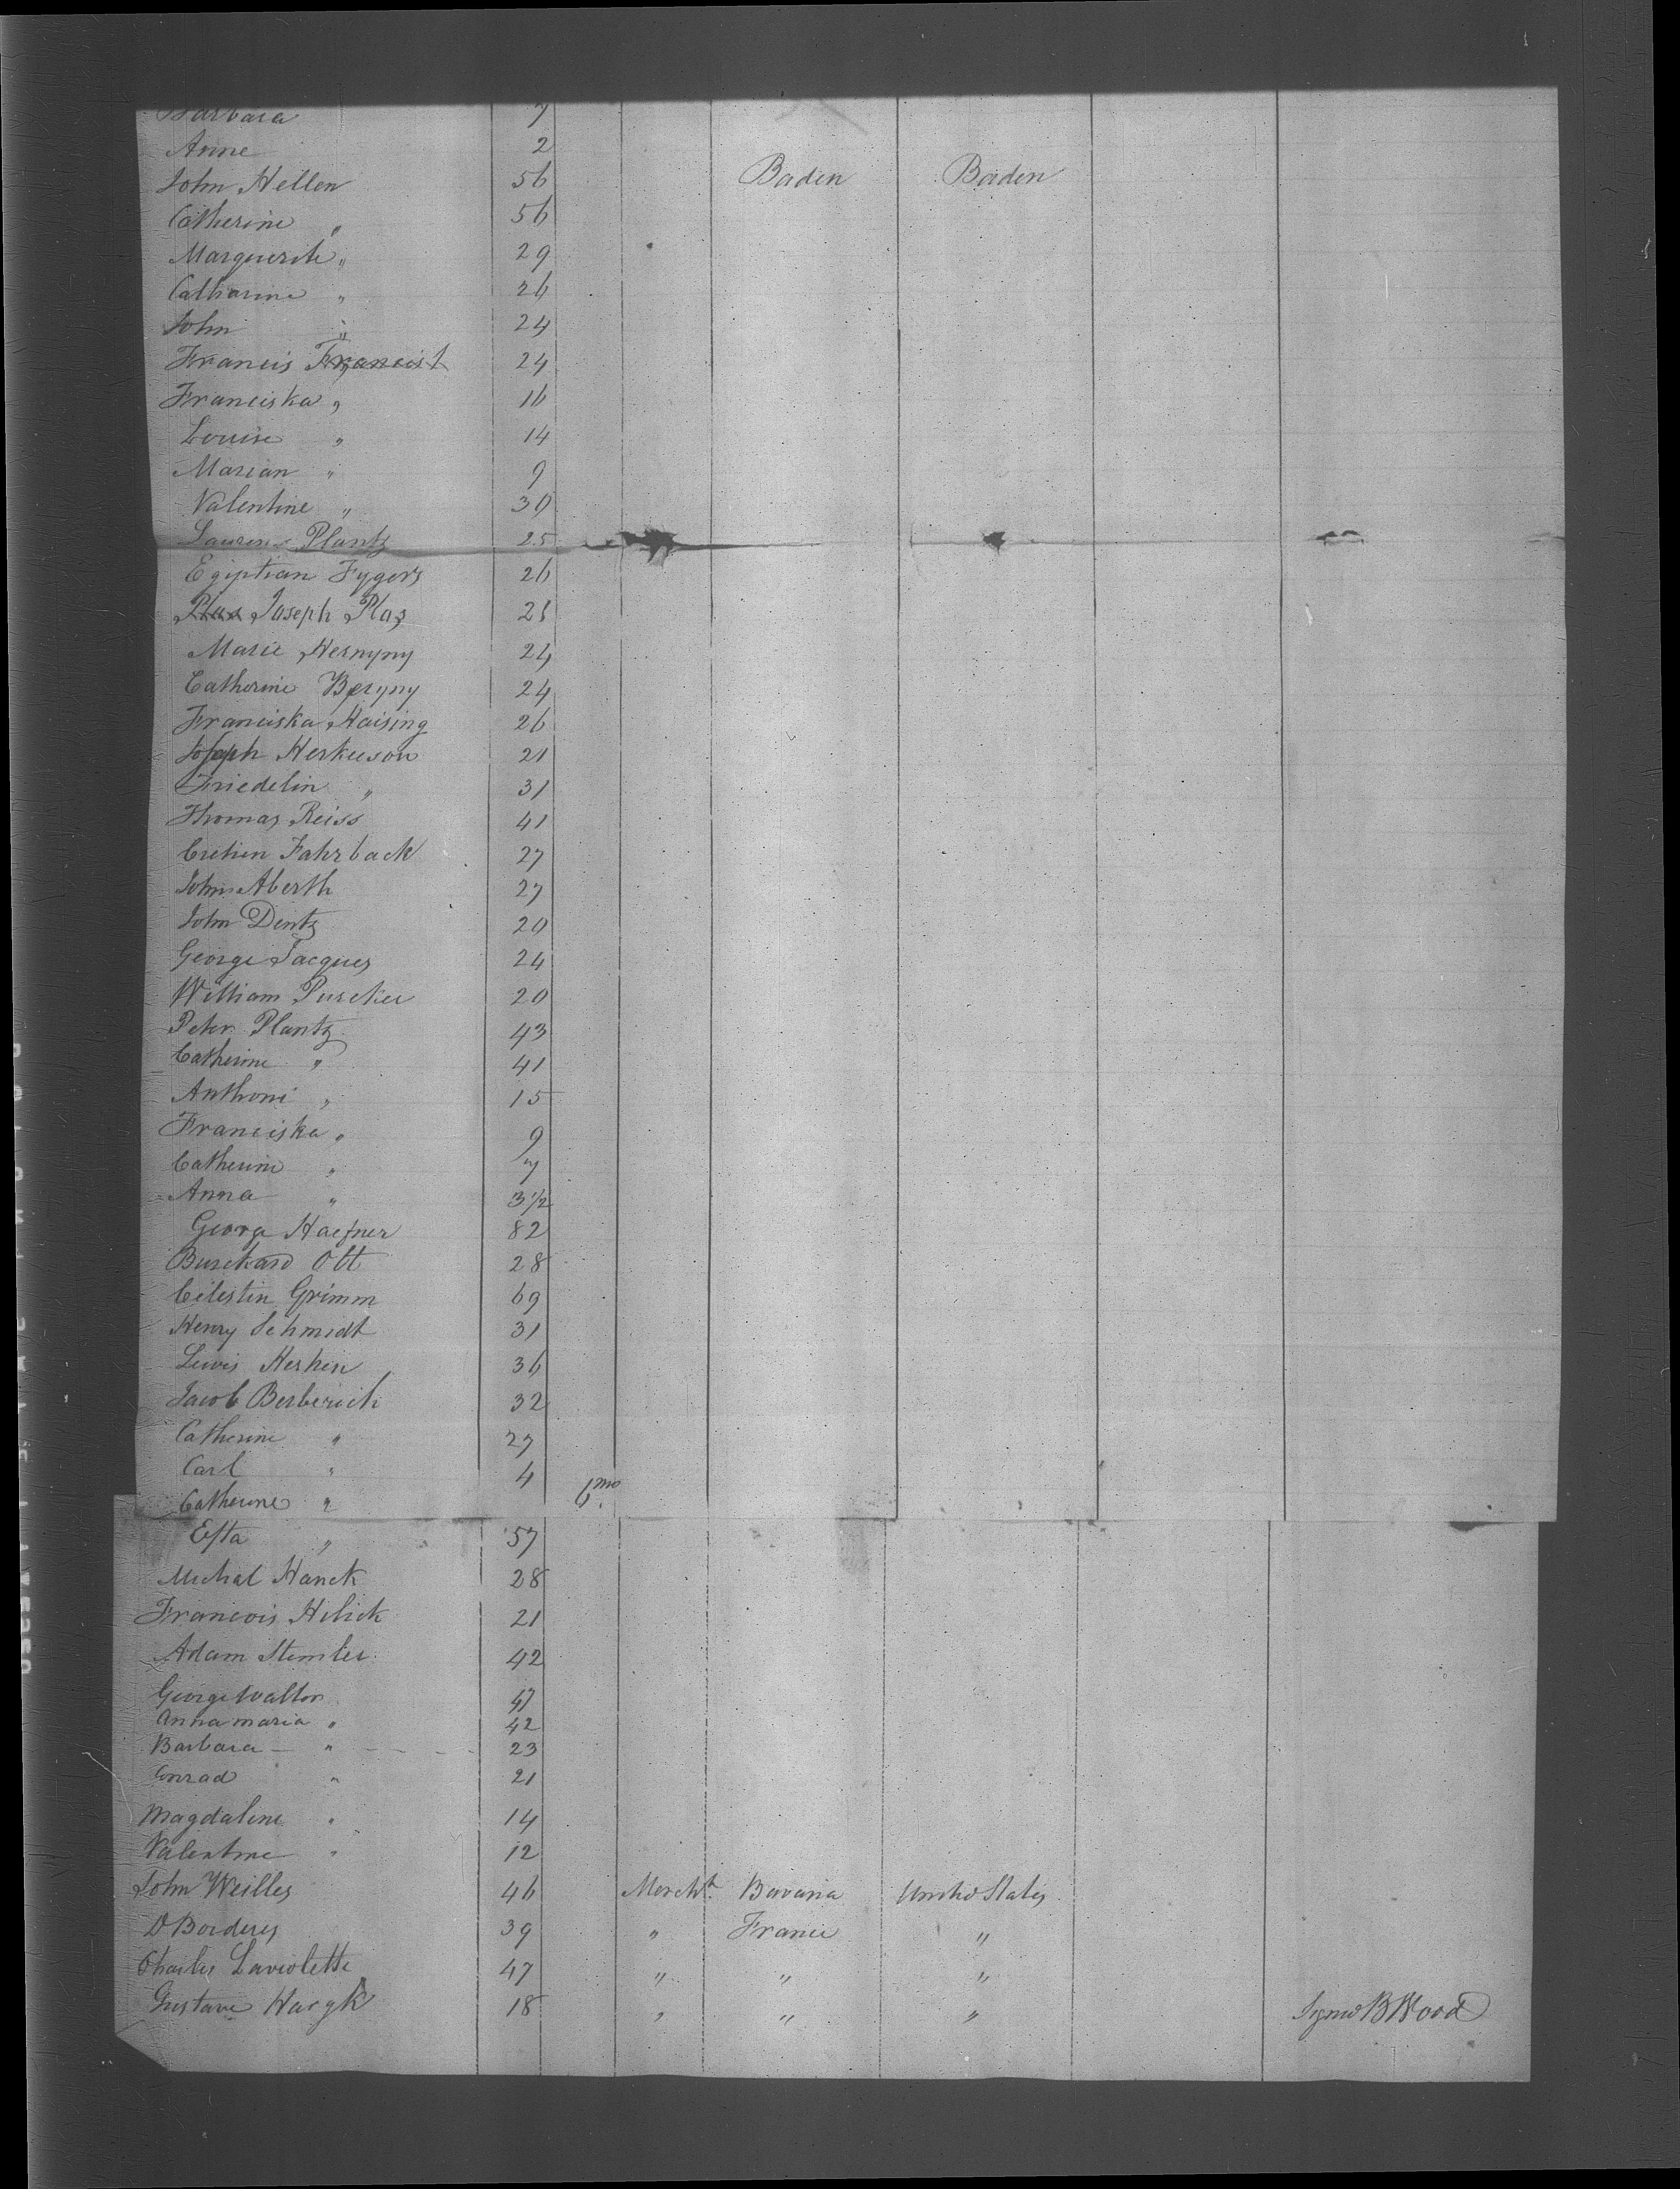 Barbara 7
Anne 2
John Hellen 56 Baden Baden
Catherine " 56
Marguerite " 29
Catharine " 26
John " 24
Francis Francist 24
Franciska " 16
Louise " 14
Marian " 9
Valentine " 30
Laurens Plantz 25
Egiptian Fygers 26
Plas Joseph Plaz 21
Marie Hernyny 24
Catherine Beryny 24
Franciska Haising 26
Joseph Herkuson 21
Friedelin " 31
Thomas Reiss 41
Cretien Fahrback 27
John Aberth 27
John Dentz 20
George Jacques 24
William Purcker 20
Peter Plantz 43
Catherine " 41
Anthoni " 15
Franciska " 9
Catherine " 7
Anna " 3 1/2
George Haefner 82
Burckard Ott 28
Celestin Grimm 69
Henry Schmidt 31
Lewis Kerhen 36
Jacob Berberich 32
Catherine " 27
Carl " 4
Catherine " 6 mo
Efta " 57
Michal Hanck 28
Francois Hilick 21
Adam Stemler 42
George Walter 47
Anna maria " 42
Barbara " 23
Conrad " 21
Magdalene " 14
Valentine " 12
John Weilles 46 Mercht. Bavaria United States
D Borderes 39 " France "
Charles Laviolette 47 " " "
Gustave Hargk 18 " " " Signed B Wood